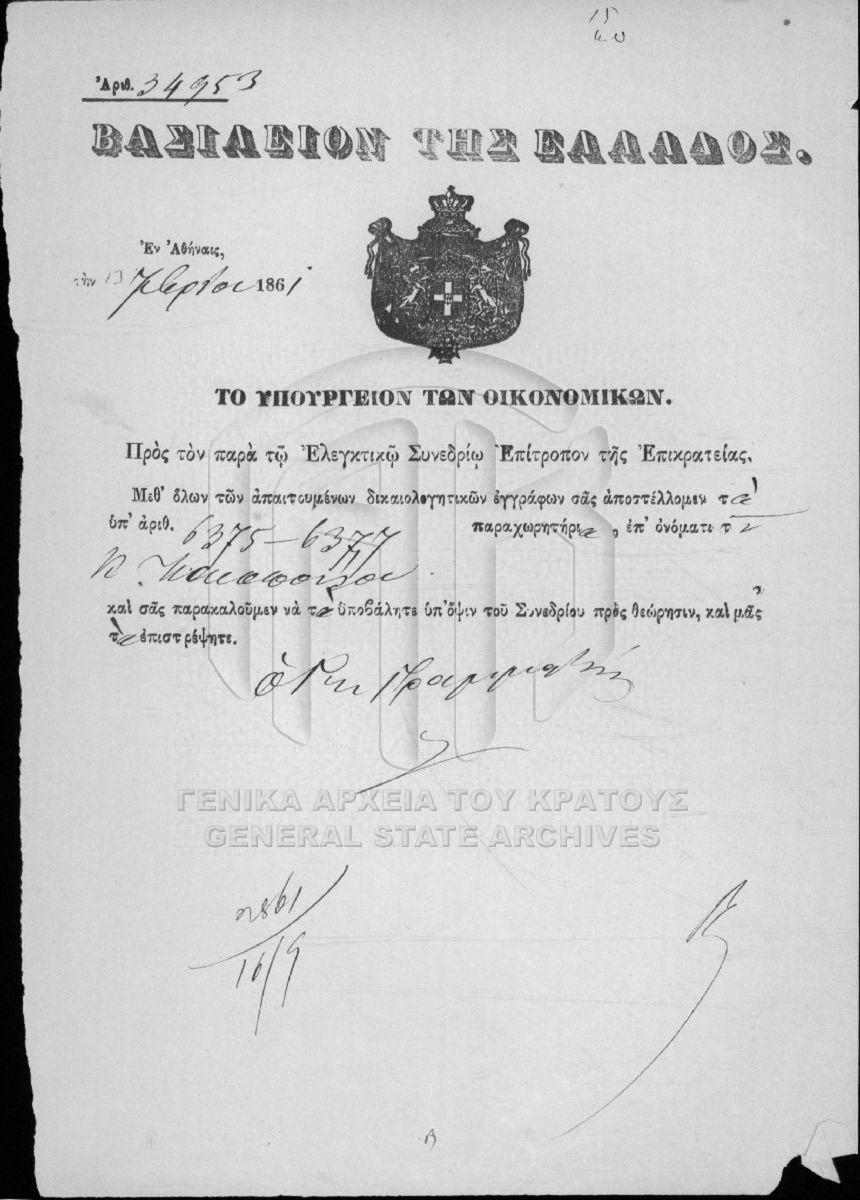 15
Ἀριθ. 34953
ΒΑΣΙΛΕΙΟΝ ΤΗΣ ΕΛΛΑΔΟΣ.
Ἐν Ἀθήναις,
τὴν 13 7βερίου 1861
ΤΟ ΥΠΟΥΡΓΕΙΟΝ ΤΩΝ ΟΙΚΟΝΟΜΙΚΩΝ.
Πρὸς τὸν παρὰ τῷ Ἐλεγκτικῷ Συνεδρίῳ Ἐπίτροπον τῆς Ἐπικρατείας.
Μεθ' ὅλων τῶν ἀπαιτουμένων δικαιολογητικῶν ἐγγράφων σᾶς ἀποστέλλομεν τὰ
ὑπ' ἀριθ. 6375—6377 παραχωρητήρια, ἐπ' ὀνόματι τ
καὶ σᾶς παρακαλοῦμεν νὰ τὰ ὑποβάλητε ὑπ' ὄψιν τοῦ Συνεδρίου πρὸς θεώρησιν, καὶ μᾶς
τὰ ἐπιστρέψητε.
ὁ Γραμματεὺς
ΓΕΝΙΚΑ ΑΡΧΕΙΑ ΤΟΥ ΚΡΑΤΟΥΣ
GENERAL STATE ARCHIVES
16/9